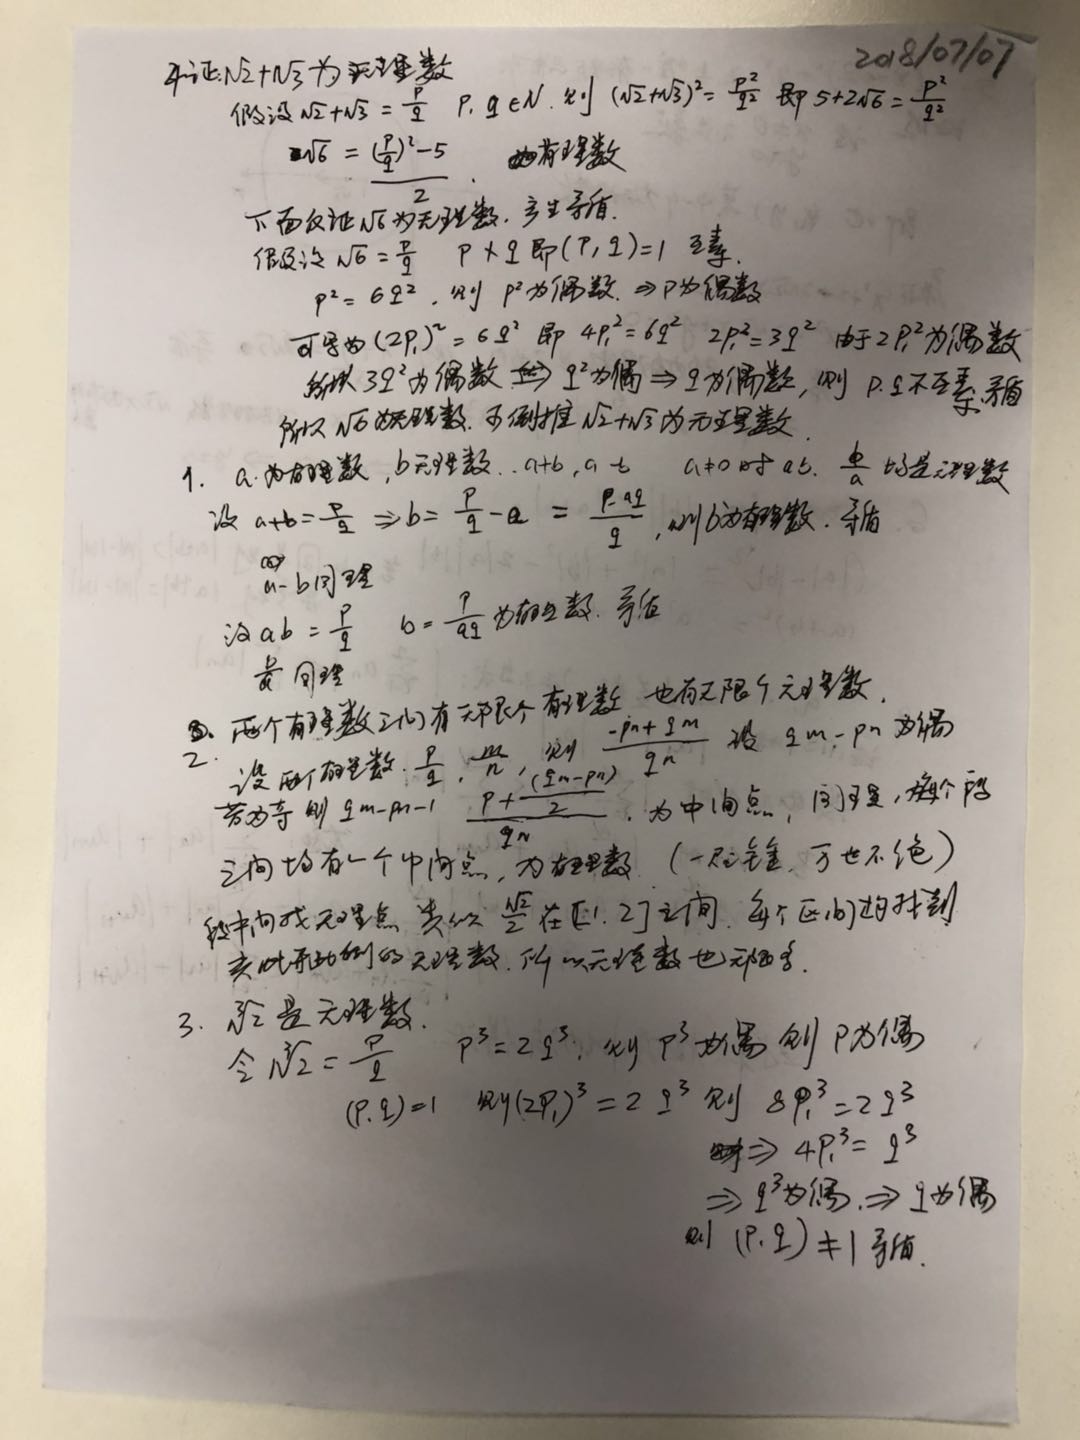 2018/07/07
4.证:√2+√3为无理数
假设√2+√3 = p/q  p, q∈N. 则 (√2+√3)² = p²/q² 即 5+2√6 = p²/q²
√6 = ((p/q)²-5)/2 . 为有理数
下面反证√6为无理数. 产生矛盾.
假设√6 = p/q  p q 即(p,q)=1 互素.
p² = 6q² , 则 p²为偶数. ⇒ p为偶数
可写为 (2p₁)² = 6q² 即 4p₁² = 6q²  2p₁² = 3q² 由于2p₁²为偶数
所以 3q²为偶数 ⇒ q²为偶 ⇒ q为偶数, 则 p.q不互素.矛盾
所以√6为无理数. 倒推√2+√3为无理数.
1. a.为有理数, b无理数. a+b, a-b  a≠0时 ab. b/a 是无理数
设 a+b = p/q ⇒ b = p/q - a = (p-aq)/q , 则b为有理数. 矛盾
a-b同理
设 ab = p/q  b = p/aq 为有理数. 矛盾
b/a 同理
2. 两个有理数之间有无限个有理数 也有无限个无理数.
设两个有理数. p/q , m/n , 则 (-pn+qm)/qn 设 qm-pn 为偶
若为奇 则 qm-pn-1 (p+(qm-pn)/2)/qn . 为中间点, 同理, 每个段
之间均有一个中间点, 为有理数. (一尺之锤, 万世不绝)
段中间找无理点 类似 √2/2 在[1,2]之间. 每个区间均找到
类此比例的无理数. 所以无理数也无穷多.
3. ³√2是无理数.
令³√2 = p/q  p³ = 2q³, 则 p³为偶 则 p为偶
(p.q)=1 则(2p₁)³ = 2q³ 则 8p₁³ = 2q³
⇒ 4p₁³ = q³
⇒ q³为偶. ⇒ q为偶
则 (p.q) ≠ 1 矛盾.